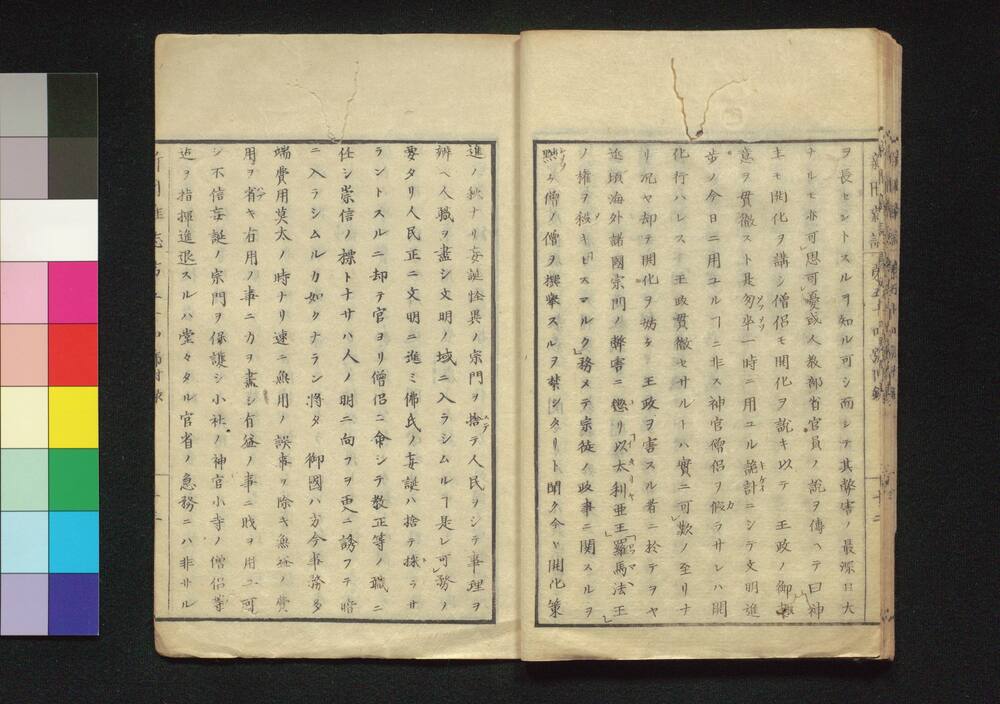 ヲ長セシトスルヲ知ル可シ而シテ其弊害ノ最深且大
ナルモ亦可思可憂或人教部省官員ノ説ヲ傳ヘテ曰神
主モ開化ヲ講シ僧侶モ開化ヲ説キ以テ 王政ノ御
意ヲ貫徹スト是匆卒一時ニ用ユル詭計ニシテ文明進
歩ノ今日ニ用ユルヿニ非ス神官僧侶ヲ假ラサレハ開
化行ハレス 王政貫徹セサルトハ實ニ可歎ノ至リナ
リ况ヤ却テ開化ヲ妨ケ 王政ヲ害スル者ニ於テヲヤ
近頃海外諸國宗門ノ弊害ニ懲リ以太利亜王羅馬法王
ノ權ヲ殺キビスマルク務メテ宗徒ノ政事ニ関スルヲ
黙ケ僧ノ僧ヲ撰擧スルヲ禁シタリト聞ク今ヤ開化策
進ノ秋ナリ妄誕怪異ノ宗門ヲ捨テ人民ヲシテ事理ヲ
辨ヘ人職ヲ盡シ文明ノ域ニ入ラシムルヿ是レ可務ノ
要タリ人民正ニ文明ニ進ミ佛氏ノ妄誕ハ捨テ採ラサ
ラントスルニ却テ官ヨリ僧侶ニ命シテ教正等ノ職ニ
任シ崇信ノ標トナサハ人ノ明ニ向フヲ更ニ誘フテ暗
ニ入ラシムルカ如クナラン将タ 御國ハ方今事務多
端費用莫太ノ時ナリ速ニ無用ノ誤事ヲ除キ無益ノ費
用ヲ省キ有用ノ事ニ力ヲ盡シ有益ノ事ニ財ヲ用ユ可
シ不信妄誕ノ宗門ヲ保護シ小社ノ神官小寺ノ僧侶等
迄ヲ指揮進退スルハ堂々タル官省ノ急務ニハ非サル